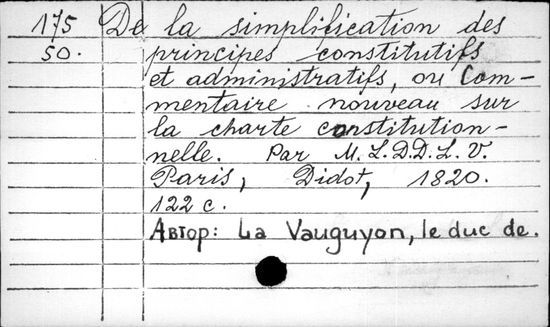 175 De la simplification des
50. principes constitutifs
et administratifs, ou Com-
mentaire nouveau sur
la charte constitution-
nelle. Par M. L. D. D. L. V.
Paris, Didot, 1820.
122 с.
Автор: La Vauguyon, le duc de.